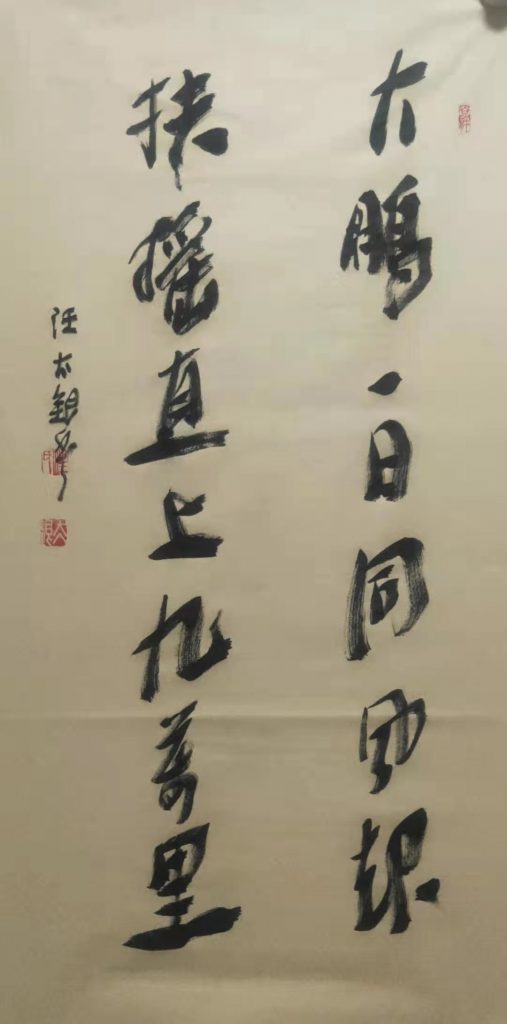 大鹏一日同风起
扶摇直上九万里
汪太银书